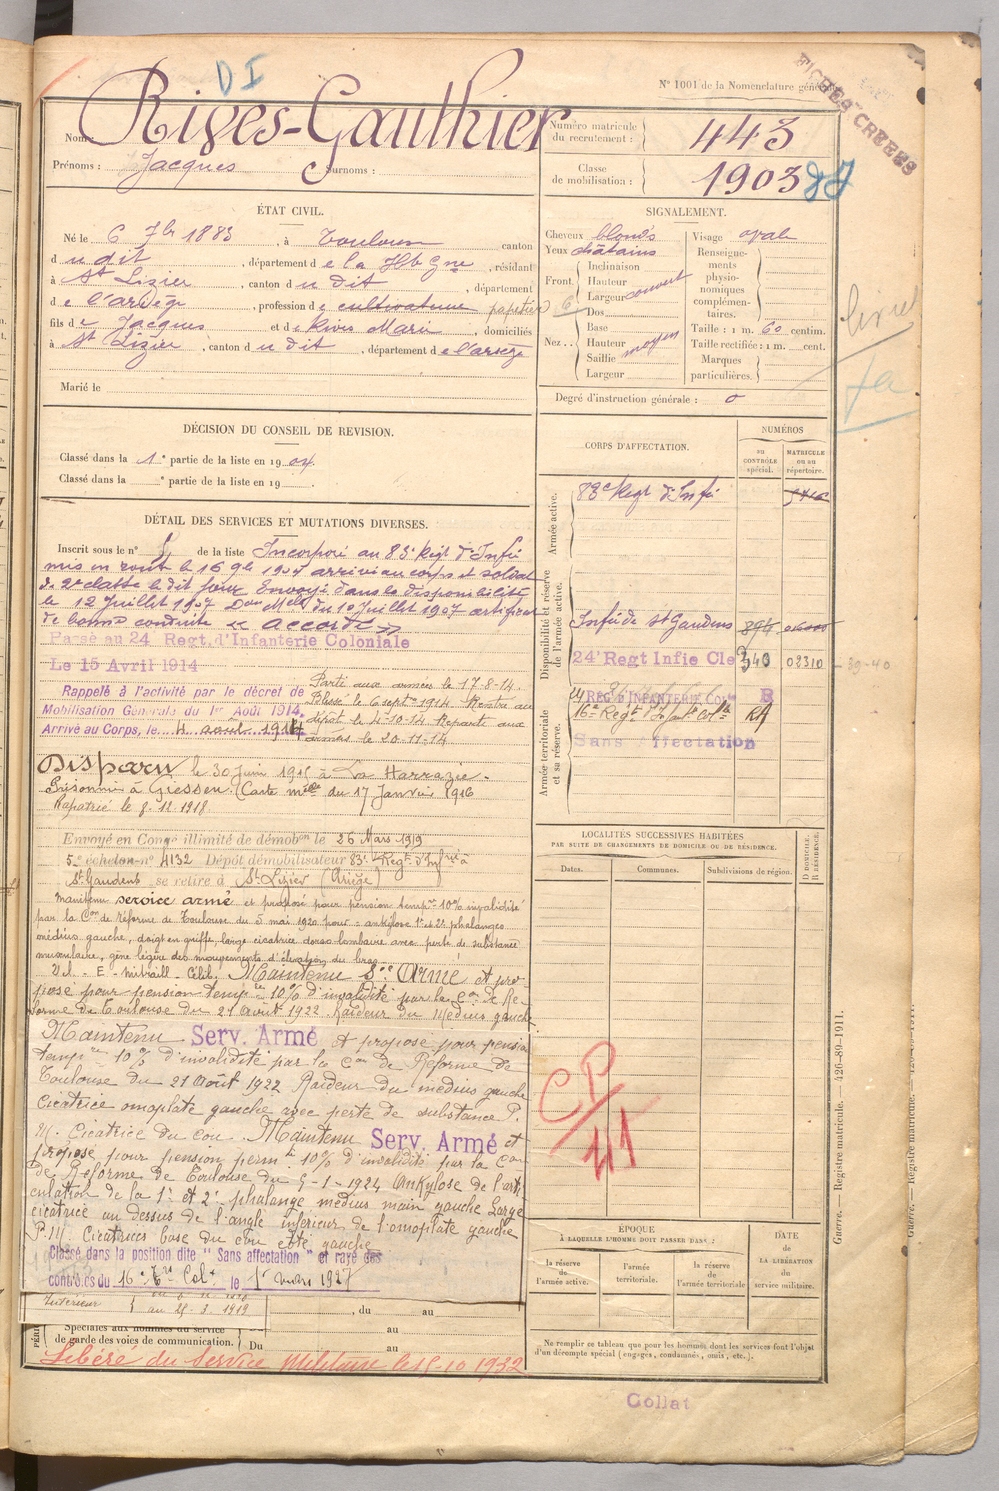 D I
N° 1001 de la Nomenclature géné
FICHES CRÉÉES
Nom : Rives-Gauthier
Prénoms : Jacques Surnoms :
Numéro matricule du recrutement : 443
Classe de mobilisation : 1903
ÉTAT CIVIL.
Né le 6 7bre 1883, à Toulouse canton
du dit, département de la Hte Gne, résidant
à St Lizier, canton du dit, département
de l'ariège, profession de cultivateur papetier
fils de Jacques et de Rives Marie, domiciliés
à St Lizier, canton du dit, département de l'ariège
Marié le
SIGNALEMENT.
Cheveux blonds
Yeux châtains
Front. Inclinaison
Hauteur
Largeur couvert
Nez. Dos
Base
Hauteur moyen
Saillie
Largeur
Visage oval
Renseignements physionomiques complémentaires.
Taille : 1 m. 60 centim.
Taille rectifiée : 1 m. cent.
Marques particulières.
Degré d'instruction générale : 0
livret
DÉCISION DU CONSEIL DE REVISION.
Classé dans la 1e partie de la liste en 1904.
Classé dans la e partie de la liste en 19 .
DÉTAIL DES SERVICES ET MUTATIONS DIVERSES.
Inscrit sous le n° de la liste Incorporé au 83e Régt d'Infie
mis en route le 16 9bre 1904 arrivé au corps et soldat
de 2e classe le dit jour Envoyé dans la disponibilité
le 12 Juillet 1907 Don Mlle du 10 Juillet 1907 certificat
de bonne conduite "accordé"
Passé au 24 Regt. d'Infanterie Coloniale
Le 15 Avril 1914
Rappelé à l'activité par le décret de
Mobilisation Générale du 1er Août 1914.
Arrivé au Corps, le 4 août 1914
Parti aux armées le 17-8-14.
Blessé le 6 septre 1914 Rentré au
dépôt le 4-10-14 Reparti aux
armées le 20-11-14
Disparu le 30 Juin 1915 à La Harrazée.
Prisonnier à Giessen. (Carte mlle du 17 Janvier 1916
Rapatrié le 8.12.1918
Envoyé en Congé illimité de démobon le 26 Mars 1919
5e échelon n° 4132 Dépôt démobilisateur 83e Regt d'Infrie à
St Gaudens se retire à St Lizier (Ariège)
Maintenu service armé et proposé pour pension tempre 10% invalidité
par la Con de réforme de Toulouse du 5 mai 1920 pour : ankylose 1e et 2e phalanges
médius gauche, doigt en griffe, large cicatrice dorso lombaire avec perte de substance
musculaire, gêne légère des mouvements d'élévation du bras
Maintenu Sce Armé et pro-
posé pour pension tempre 10% d'invalidité par la Con de Ré-
forme de Toulouse du 21 août 1922 Raideur du Médius gauche
Maintenu Serv. Armé et proposé pour pension
tempre 10% d'invalidité par la Con de Réforme de
Toulouse du 21 Août 1922 Raideur du médius gauche
Cicatrice omoplate gauche avec perte de substance P.
M. Cicatrice du cou. Maintenu Serv. Armé et
proposé pour pension perm te 10% d'invalidité par la Con
de Réforme de Toulouse du 5-1-1924 Ankylose de l'art.
culation de la 1e et 2e phalange médius main gauche Large
cicatrice au dessus de l'angle inférieur de l'omoplate gauche
P.M. Cicatrices base du cou côté gauche
Classé dans la position dite "Sans affectation" et rayé des
contrôles du 16e Tir Col. le 1er mars 1927
Intérieur
au 25-3-1919
, du au
au
Spéciales aux hommes du service
de garde des voies de communication. Du au
Libéré du Service Militaire le 15-10 1932
CORPS D'AFFECTATION.
NUMÉROS
au contrôle spécial.
MATRICULE ou au répertoire.
Armée active.
83e Regt d'Infie
Disponibilité et réserve de l'armée active.
Infie de St Gaudens
24e Regt Infie Cle 343 02310
39-40
Armée territoriale et sa réserve.
REG. D'INFANTERIE COLle B
16e Regt Infant Colle
Sans Affectation
LOCALITÉS SUCCESSIVES HABITÉES
PAR SUITE DE CHANGEMENTS DE DOMICILE OU DE RÉSIDENCE.
Dates. Communes. Subdivisions de région. D DOMICILE. R RÉSIDENCE.
CP
41
ÉPOQUE
À LAQUELLE L'HOMME DOIT PASSER DANS :
la réserve de l'armée active.
l'armée territoriale.
la réserve de l'armée territoriale
DATE de LA LIBÉRATION du service militaire.
Ne remplir ce tableau que pour les hommes dont les services font l'objet
d'un décompte spécial (engagés, condamnés, omis, etc.).
Guerre. — Registre matricule. — 426-89-1911.
Guerre. — Registre matricule.
Collat